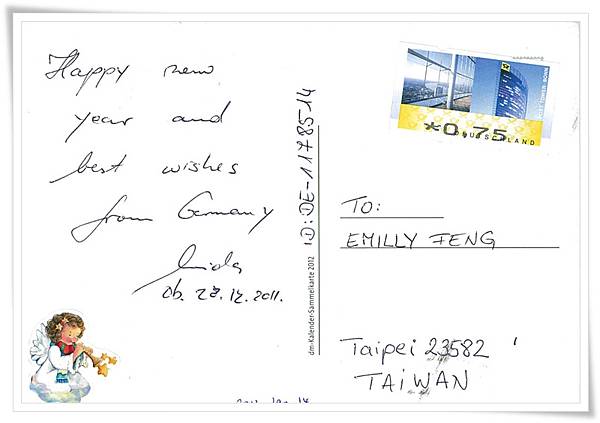 Happy new
year and
best wishes
from Germany
Ob. 27.12.2011.
ID: DE-1178514
dm-Kalender-Sammelkarte 2012
*0,75
DEUTSCHLAND
TO:
EMILLY FENG
Taipei 23582
TAIWAN